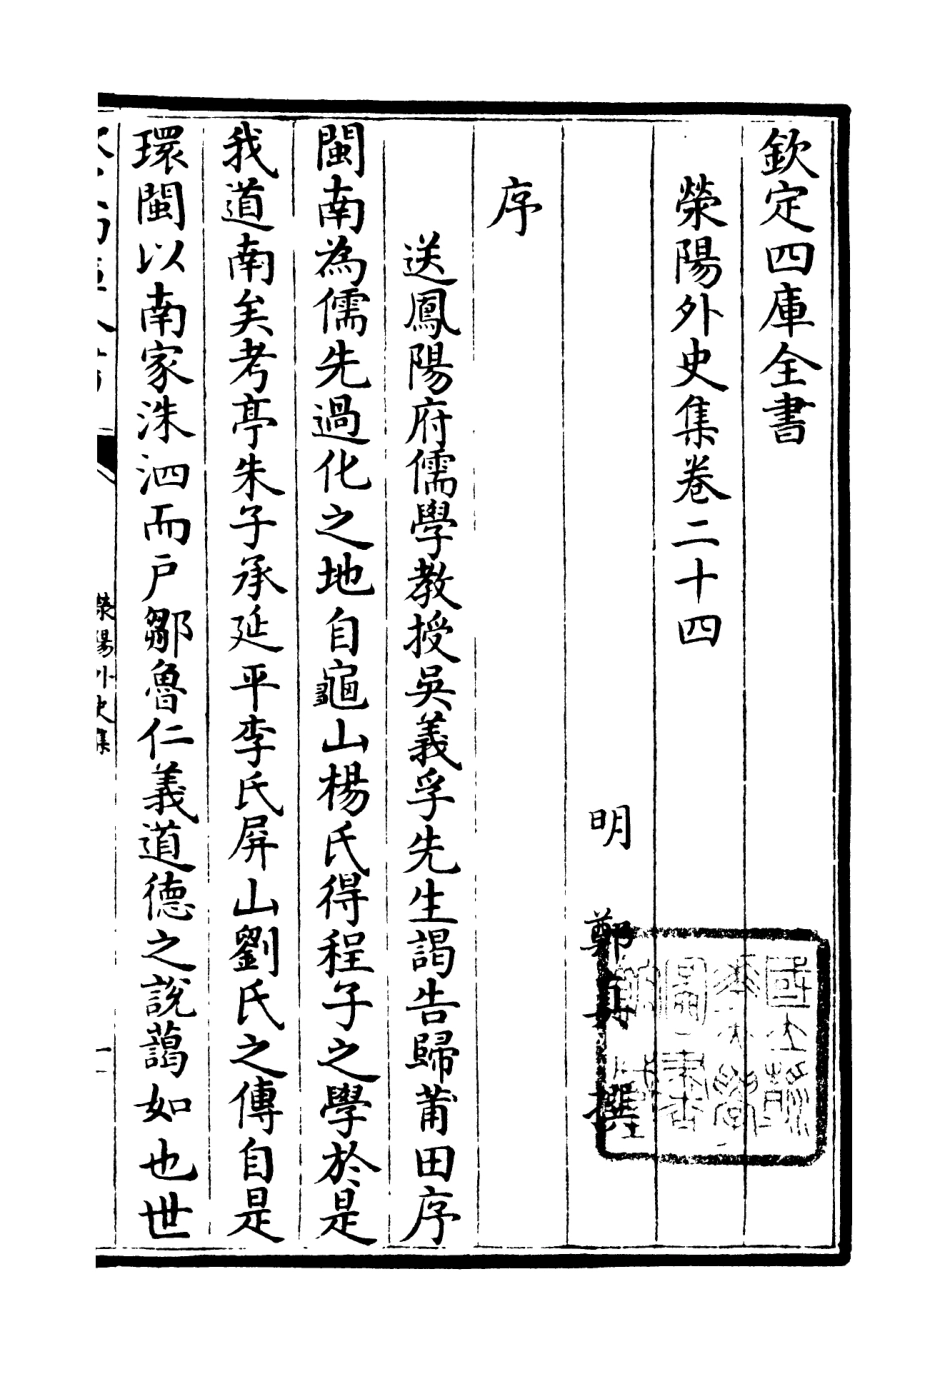 欽定四庫全書
滎陽外史集卷二十四
明 鄭真 撰
序
送鳳陽府儒學教授吳義孚先生謁告歸莆田序
閩南為儒先過化之地自龜山楊氏得程子之學於是
我道南矣考亭朱子承延平李氏屏山劉氏之傳自是
環閩以南家洙泗而戶鄒魯仁義道德之說藹如也世
滎陽外史集